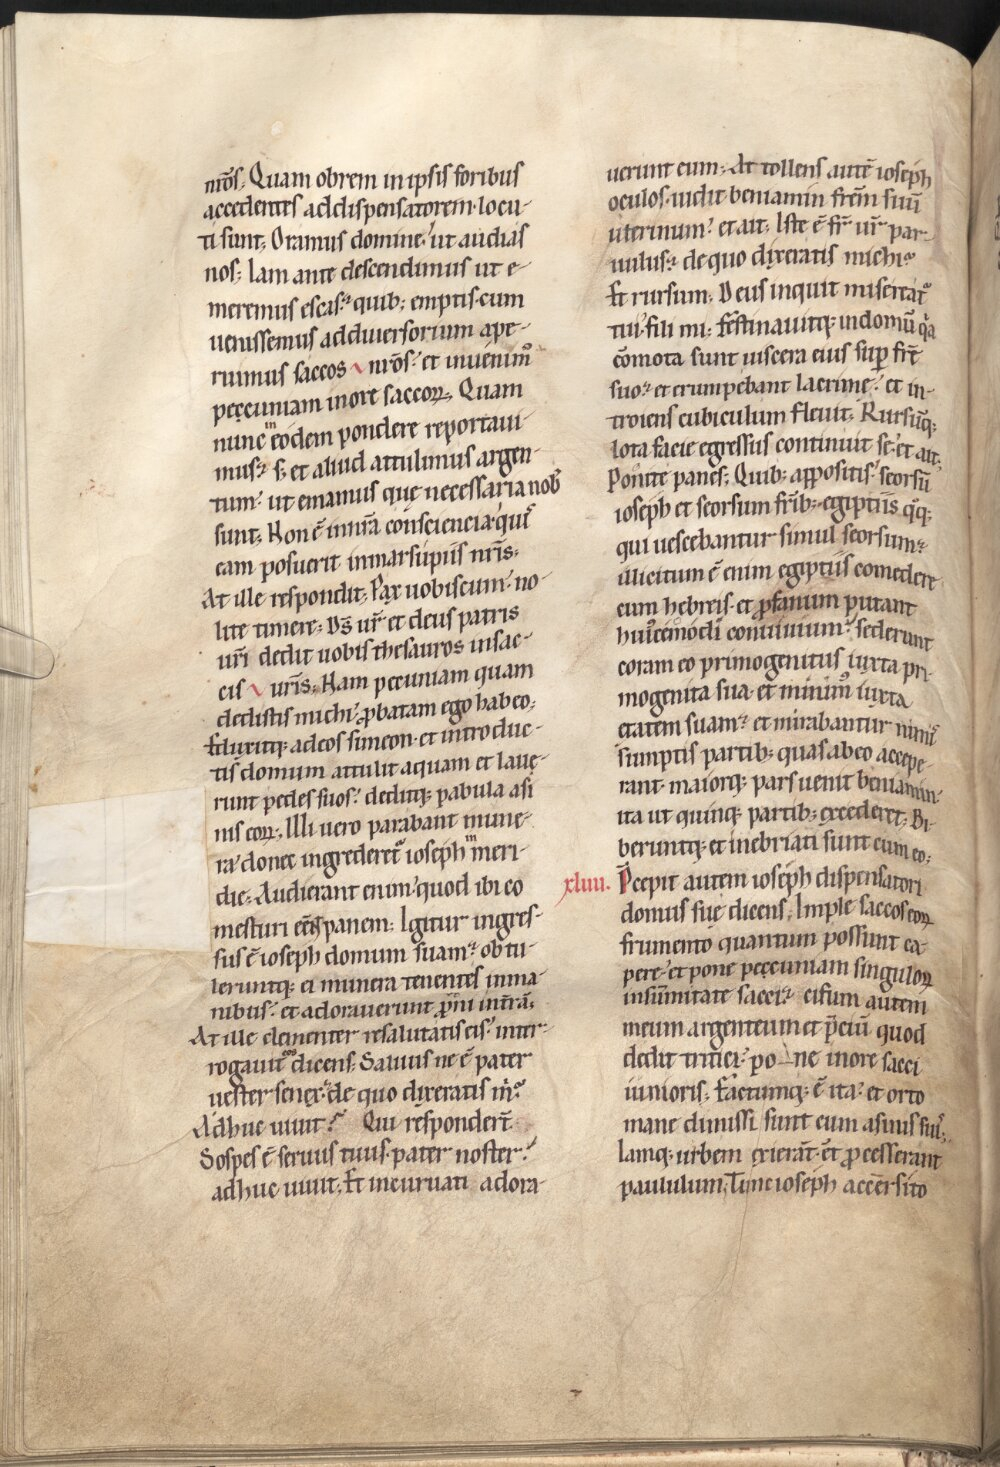 nr̄os; Quam obrem in ipsis foribus
accedentes addispensatorem locu-
ti sunt; Oramus domine ut audias
nos; Iam ante descendimus ut e-
meremus escas; quib; emptis cum
uenissemus addiuersorium ape-
ruimus saccos nr̄os; et inuenim᷒
pecuniam inore saccoꝝ; Quam
nunc eodem pondere reportaui
mus; s; et aliud attulimus argen-
tum ut emamus quę necessaria nob᷒
sunt; Non ē innr̄a consciencia qui᷒
eam posuerit inmarsupiis nr̄is;
At ille respondit; Pax uobiscum no-
lite timere; Ds̄ ur̄ et deus patris
uri dedit uobis thesauros insac-
cis ur̄is; Nam pecuniam quam
dedistis michi ꝓbatam ego habeo;
Eduxitq; adeos simeon et introduc-
tis domum attulit aquam et lauę-
runt pedes suos; deditq; pabula asi
nis eoꝝ; Illi uero parabant mune-
ra donec ingrederet᷒ ioseph meri-
die; Audierant enim quod ibi co
mesturi eēnt panem; Igitur ingres-
sus ē ioseph domum suam; obtu-
leruntq; ei munera tenentes inma-
nibus; et adorauerunt ꝓni intrā;
At ille clementer resalutatis eis inter-
rogauit dicens; Saluus ne ē pater
uester senex de quo dixeratis m̄?
Adhuc uiuit? Qui respondert̄
Sospes ē seruus tuus pater noster;
adhuc uiuit; Et incuruati adora-
uerunt eum; At tollens autē ioseph
oculos uidit beniamin frēm suū
uterinum; et ait; Iste ē fr̄ ur̄ par-
uulus; dequo dixeratis michi?
Et rursum; Deus inquit misereat᷒
tui fili mi; Festinauitq; indomū qa
cōmota sunt uiscera eius suꝑ frē
suo; et erumpebant lacrime; et in-
troiens cubiculum fleuit; Rursūq;
lota facie egressus continuit se et ait;
Ponite panes; Quib; appositis seorsū
ioseph et seorsum frib; egiptiis qq;
qui uescebantur simul seorsum;
illicitum ē enim egiptiis comedere
cum hebreis et ꝓfanum putant
hui᷒cemodi conuiuium; sederunt
coram eo primogenitus iuxta pri-
mogenita sua et minim᷒ iuxta
etatem suam; et mirabantur nimis
sumptis partib; quas abeo accepe-
rant maiorq; pars uenit beniamin
ita ut quinq; partib; excederet; Bi-
beruntq; et inebriati sunt cum eo;
xliiii. Pcepit autem ioseph dispensatori
domus suę dicens; Imple saccos eoꝝ
frumento quantum possunt ca-
pere et pone pecuniam singuloꝝ
insūmitate sacci; cifum autem
meum argenteum et p̄ciū quod
dedit tritici po ne inore sacci
iunioris; Factumq; ē ita et orto
mane dimissi sunt cum asinis sui᷒;
Iamq; urbem exierāt et ꝓcesserant
paululum; Tunc ioseph accersito